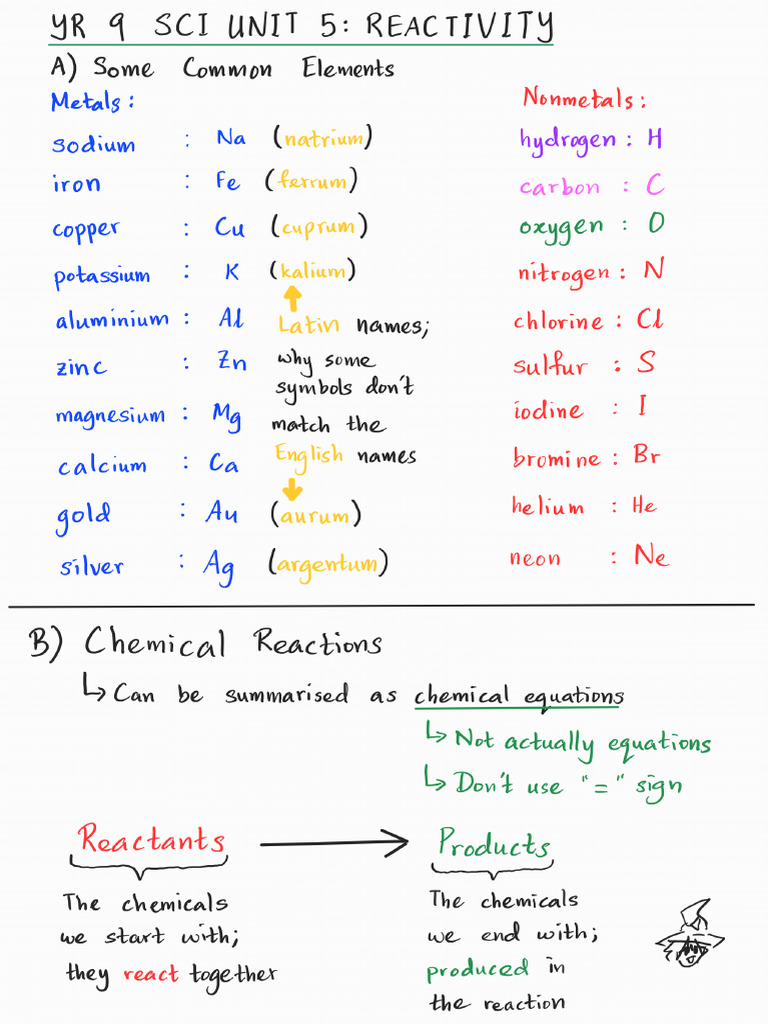 YR 9 SCI UNIT 5: REACTIVITY
A) Some Common Elements
Metals:
sodium : Na (natrium)
iron : Fe (ferrum)
copper : Cu (cuprum)
potassium : K (kalium)
aluminium : Al
zinc : Zn
magnesium : Mg
calcium : Ca
gold : Au (aurum)
silver : Ag (argentum)
Latin names;
why some
symbols don't
match the
English names
Nonmetals:
hydrogen : H
carbon : C
oxygen : O
nitrogen : N
chlorine : Cl
sulfur : S
iodine : I
bromine : Br
helium : He
neon : Ne
B) Chemical Reactions
↳ Can be summarised as chemical equations
↳ Not actually equations
↳ Don't use "=" sign
Reactants → Products
The chemicals
we start with;
they react together
The chemicals
we end with;
produced in
the reaction